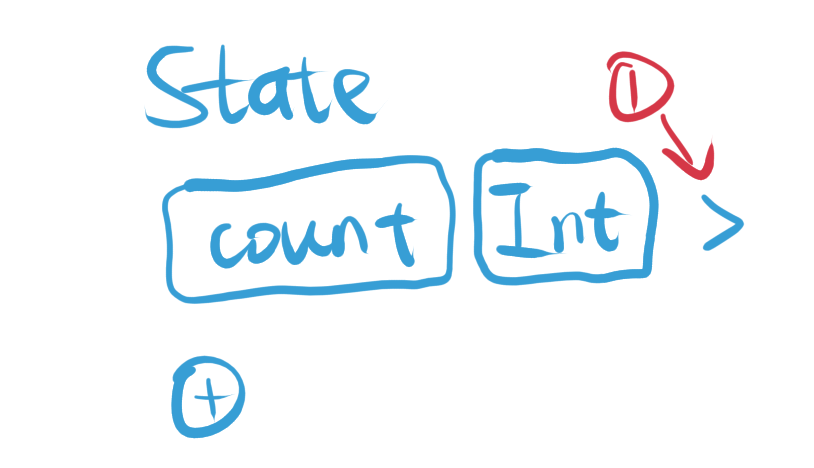 State
1
count Int >
+